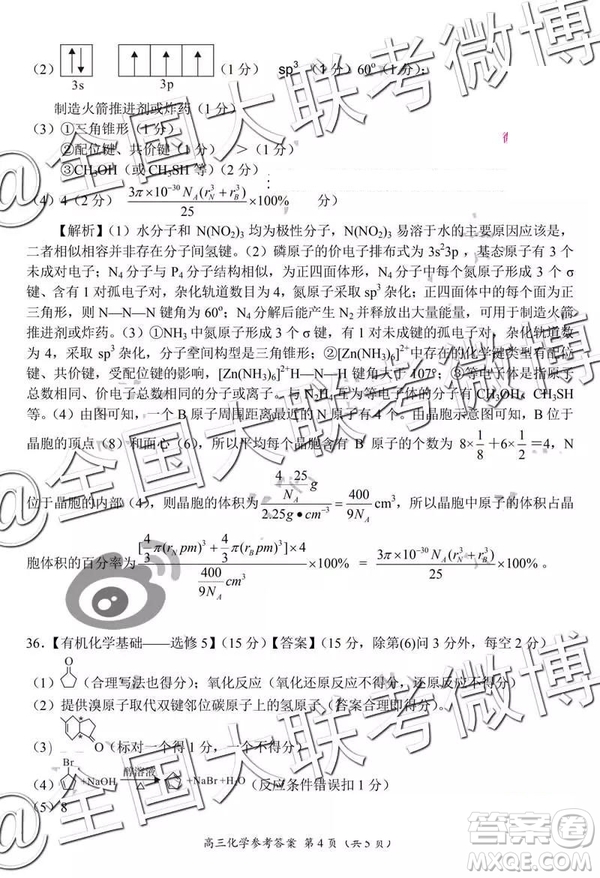 (2) ↑↓ ↑ ↑ ↑ (1 分) sp³ (1 分) 60° (1 分);
3s 3p
制造火箭推进剂或炸药(1 分)
(3)①三角锥形(1 分)
②配位键、共价键(1 分) >(1 分)
③CH₃OH(或 CH₃SH 等)(2 分)
(4)4(2 分) 3π×10⁻³⁰N_A(r_N³+r_B³)/25 ×100% 分)
【解析】(1)水分子和 N(NO₂)₃ 均为极性分子,N(NO₂)₃ 易溶于水的主要原因应该是,
二者相似相容并非存在分子间氢键。(2)磷原子的价电子排布式为 3s²3p ,基态原子有 3 个
未成对电子;N₄ 分子与 P₄ 分子结构相似,为正四面体形,N₄ 分子中每个氮原子形成 3 个 σ
键、含有 1 对孤电子对,杂化轨道数目为 4,氮原子采取 sp³ 杂化;正四面体的正面为正三
角形,则 N—N—N 键角为 60°;N₄ 分解后能产生 N₂ 并释放出大量能量,可用于制造火箭
推进剂或炸药。(3)①NH₃ 中氮原子形成 3 个 σ 键,有 1 对未成键的孤电子对,杂化轨道数
为 4,采取 sp³ 杂化,分子空间构型是三角锥形;②[Zn(NH₃)₆]²⁺中存在的化学键类型有配位
键、共价键,受配位键的影响,[Zn(NH₃)₆]²⁺H—N—H 键角大于 107°;③等电子体是指原子
总数相同、价电子总数相同的分子或离子。与 N₂H₄ 互为等电子体的分子有 CH₃OH、CH₃SH
等。(4)由图可知,一个 B 原子周围距离最近的 N 原子有 4 个。由晶胞示意图可知,B 位于
晶胞的顶点(8)和面心(6),所以平均每个晶胞含有 B 原子的个数为 8×1/8+6×1/2=4,N
位于晶胞的内部(4),则晶胞的体积为 (4×25/N_A g)/(2.25g•cm⁻³)=400/9N_A cm³,所以,晶胞中原子的体积占晶
胞体积的百分率为 [4/3π(r_N pm)³+4/3π(r_B pm)³]×4 / (400/9N_A cm³) ×100% = 3π×10⁻³⁰N_A(r_N³+r_B³)/25 ×100% 。
36.【有机化学基础——选修 5】(15 分)【答案】(15 分,除第(6)问 3 分外,每空 2 分)
(1) O (合理写法也可以得分);氧化反应(消去反应不得分,氧化还原反应不得分)
(2)提供溴原子取代双键邻位碳原子上的氢原子(答案合理即得分)
(3) * O (标对一个得 1 分,一个不得分)
(4) Br +NaOH 醇溶液 △ +NaBr+H₂O(反应条件错误扣 1 分)
(5)8
高三化学参考答案 第 4 页(共 5 页)
@全国大联考微博
@全国大联考微博
@全国大联考微博
答案圈